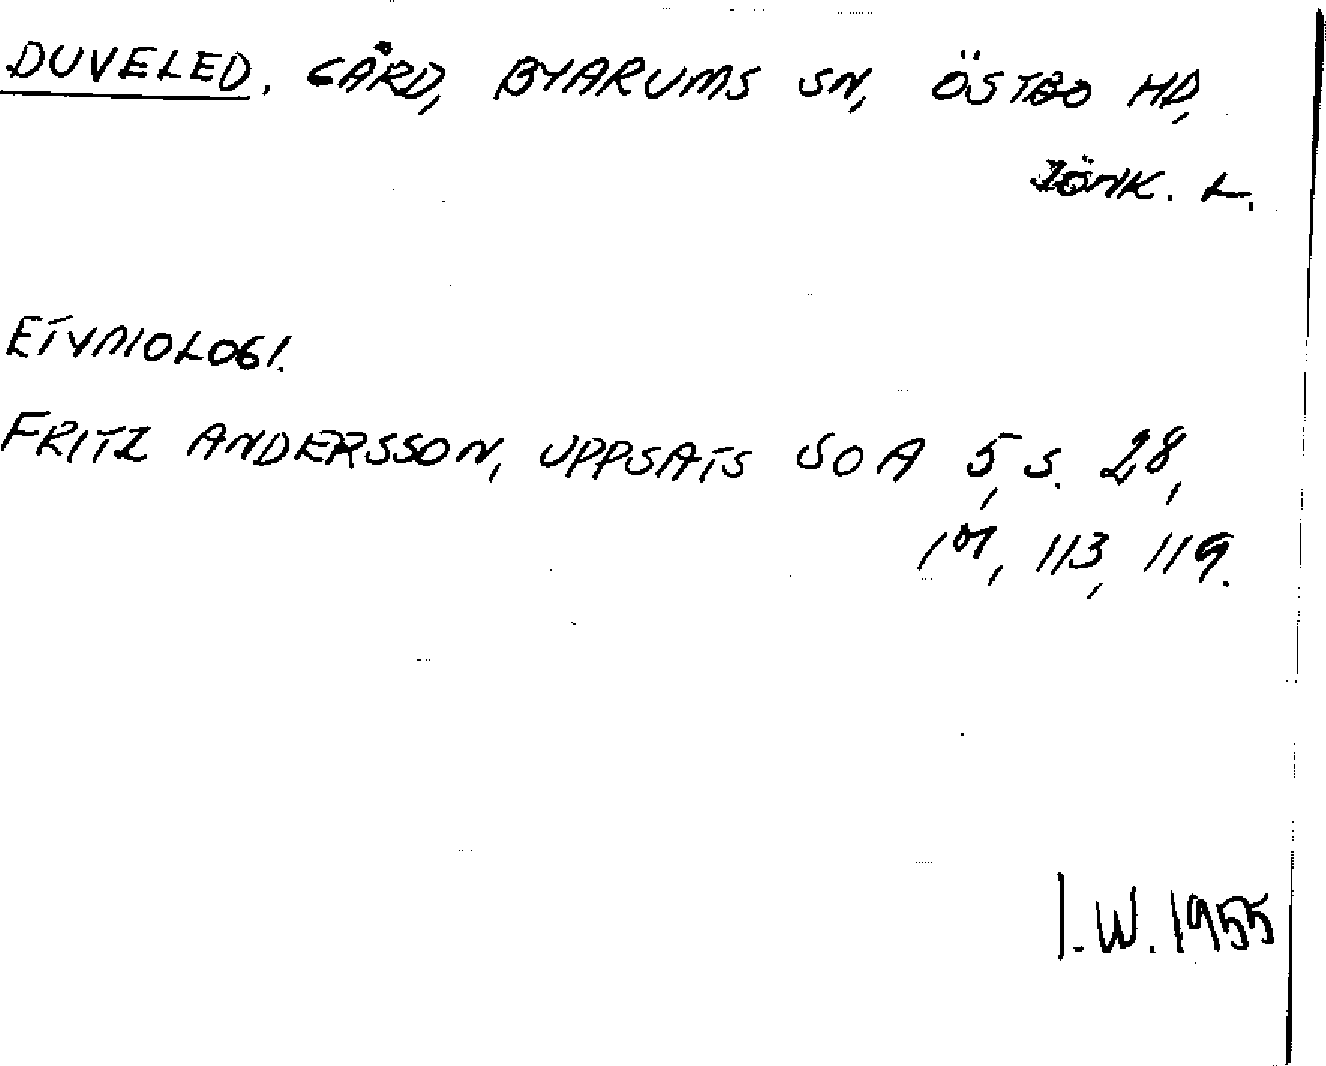 DUVELED, GÅRD, BYARUMS SN, ÖSTBO HD,
JÖNK. L.
ETYMOLOGI.
FRITZ ANDERSSON, UPPSATS SOA 5, S. 28,
113, 119.
I.W. 1955